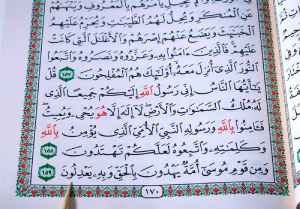 يَأْمُرُهُم بِٱلْمَعْرُوفِ وَيَنْهَىٰهُمْ
عَنِ ٱلْمُنكَرِ وَيُحِلُّ لَهُمُ ٱلطَّيِّبَـٰتِ وَيُحَرِّمُ عَلَيْهِمُ
ٱلْخَبَـٰٓئِثَ وَيَضَعُ عَنْهُمْ إِصْرَهُمْ وَٱلْأَغْلَـٰلَ ٱلَّتِى كَانَتْ
عَلَيْهِمْ فَٱلَّذِينَ ءَامَنُوا۟ بِهِۦ وَعَزَّرُوهُ وَنَصَرُوهُ وَٱتَّبَعُوا۟
ٱلنُّورَ ٱلَّذِىٓ أُنزِلَ مَعَهُۥٓ أُو۟لَـٰٓئِكَ هُمُ ٱلْمُفْلِحُونَ ١٥٧ قُلْ
يَـٰٓأَيُّهَا ٱلنَّاسُ إِنِّى رَسُولُ ٱللَّهِ إِلَيْكُمْ جَمِيعًا ٱلَّذِى
لَهُۥ مُلْكُ ٱلسَّمَـٰوَٰتِ وَٱلْأَرْضِ لَآ إِلَـٰهَ إِلَّا هُوَ يُحْىِۦ وَيُمِيتُ
فَـَٔامِنُوا۟ بِٱللَّهِ وَرَسُولِهِ ٱلنَّبِىِّ ٱلْأُمِّىِّ ٱلَّذِى يُؤْمِنُ بِٱللَّهِ
وَكَلِمَـٰتِهِۦ وَٱتَّبِعُوهُ لَعَلَّكُمْ تَهْتَدُونَ ١٥٨
وَمِن قَوْمِ مُوسَىٰٓ أُمَّةٌ يَهْدُونَ بِٱلْحَقِّ وَبِهِۦ يَعْدِلُونَ ١٥٩
١٧٠